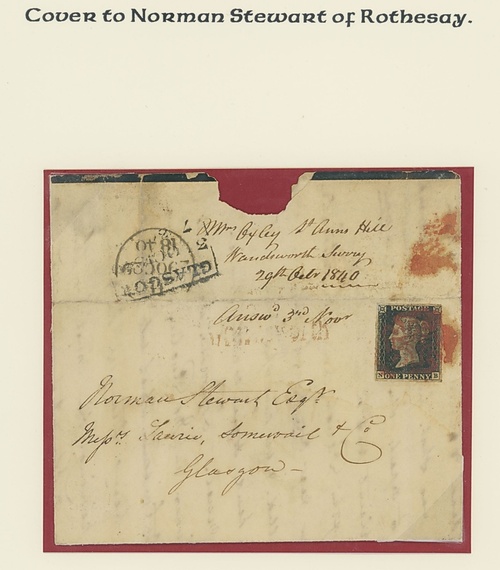 Cover to Norman Stewart of Rothesay.
Mrs Oxley St Anns Hill
Wandsworth Surrey
29th Octr 1840
Answd 3rd Novr
GLASGOW
POSTAGE
ONE PENNY
N B
Norman Stewart Esqr
Messrs Lawrie, Somervail & Co
Glasgow